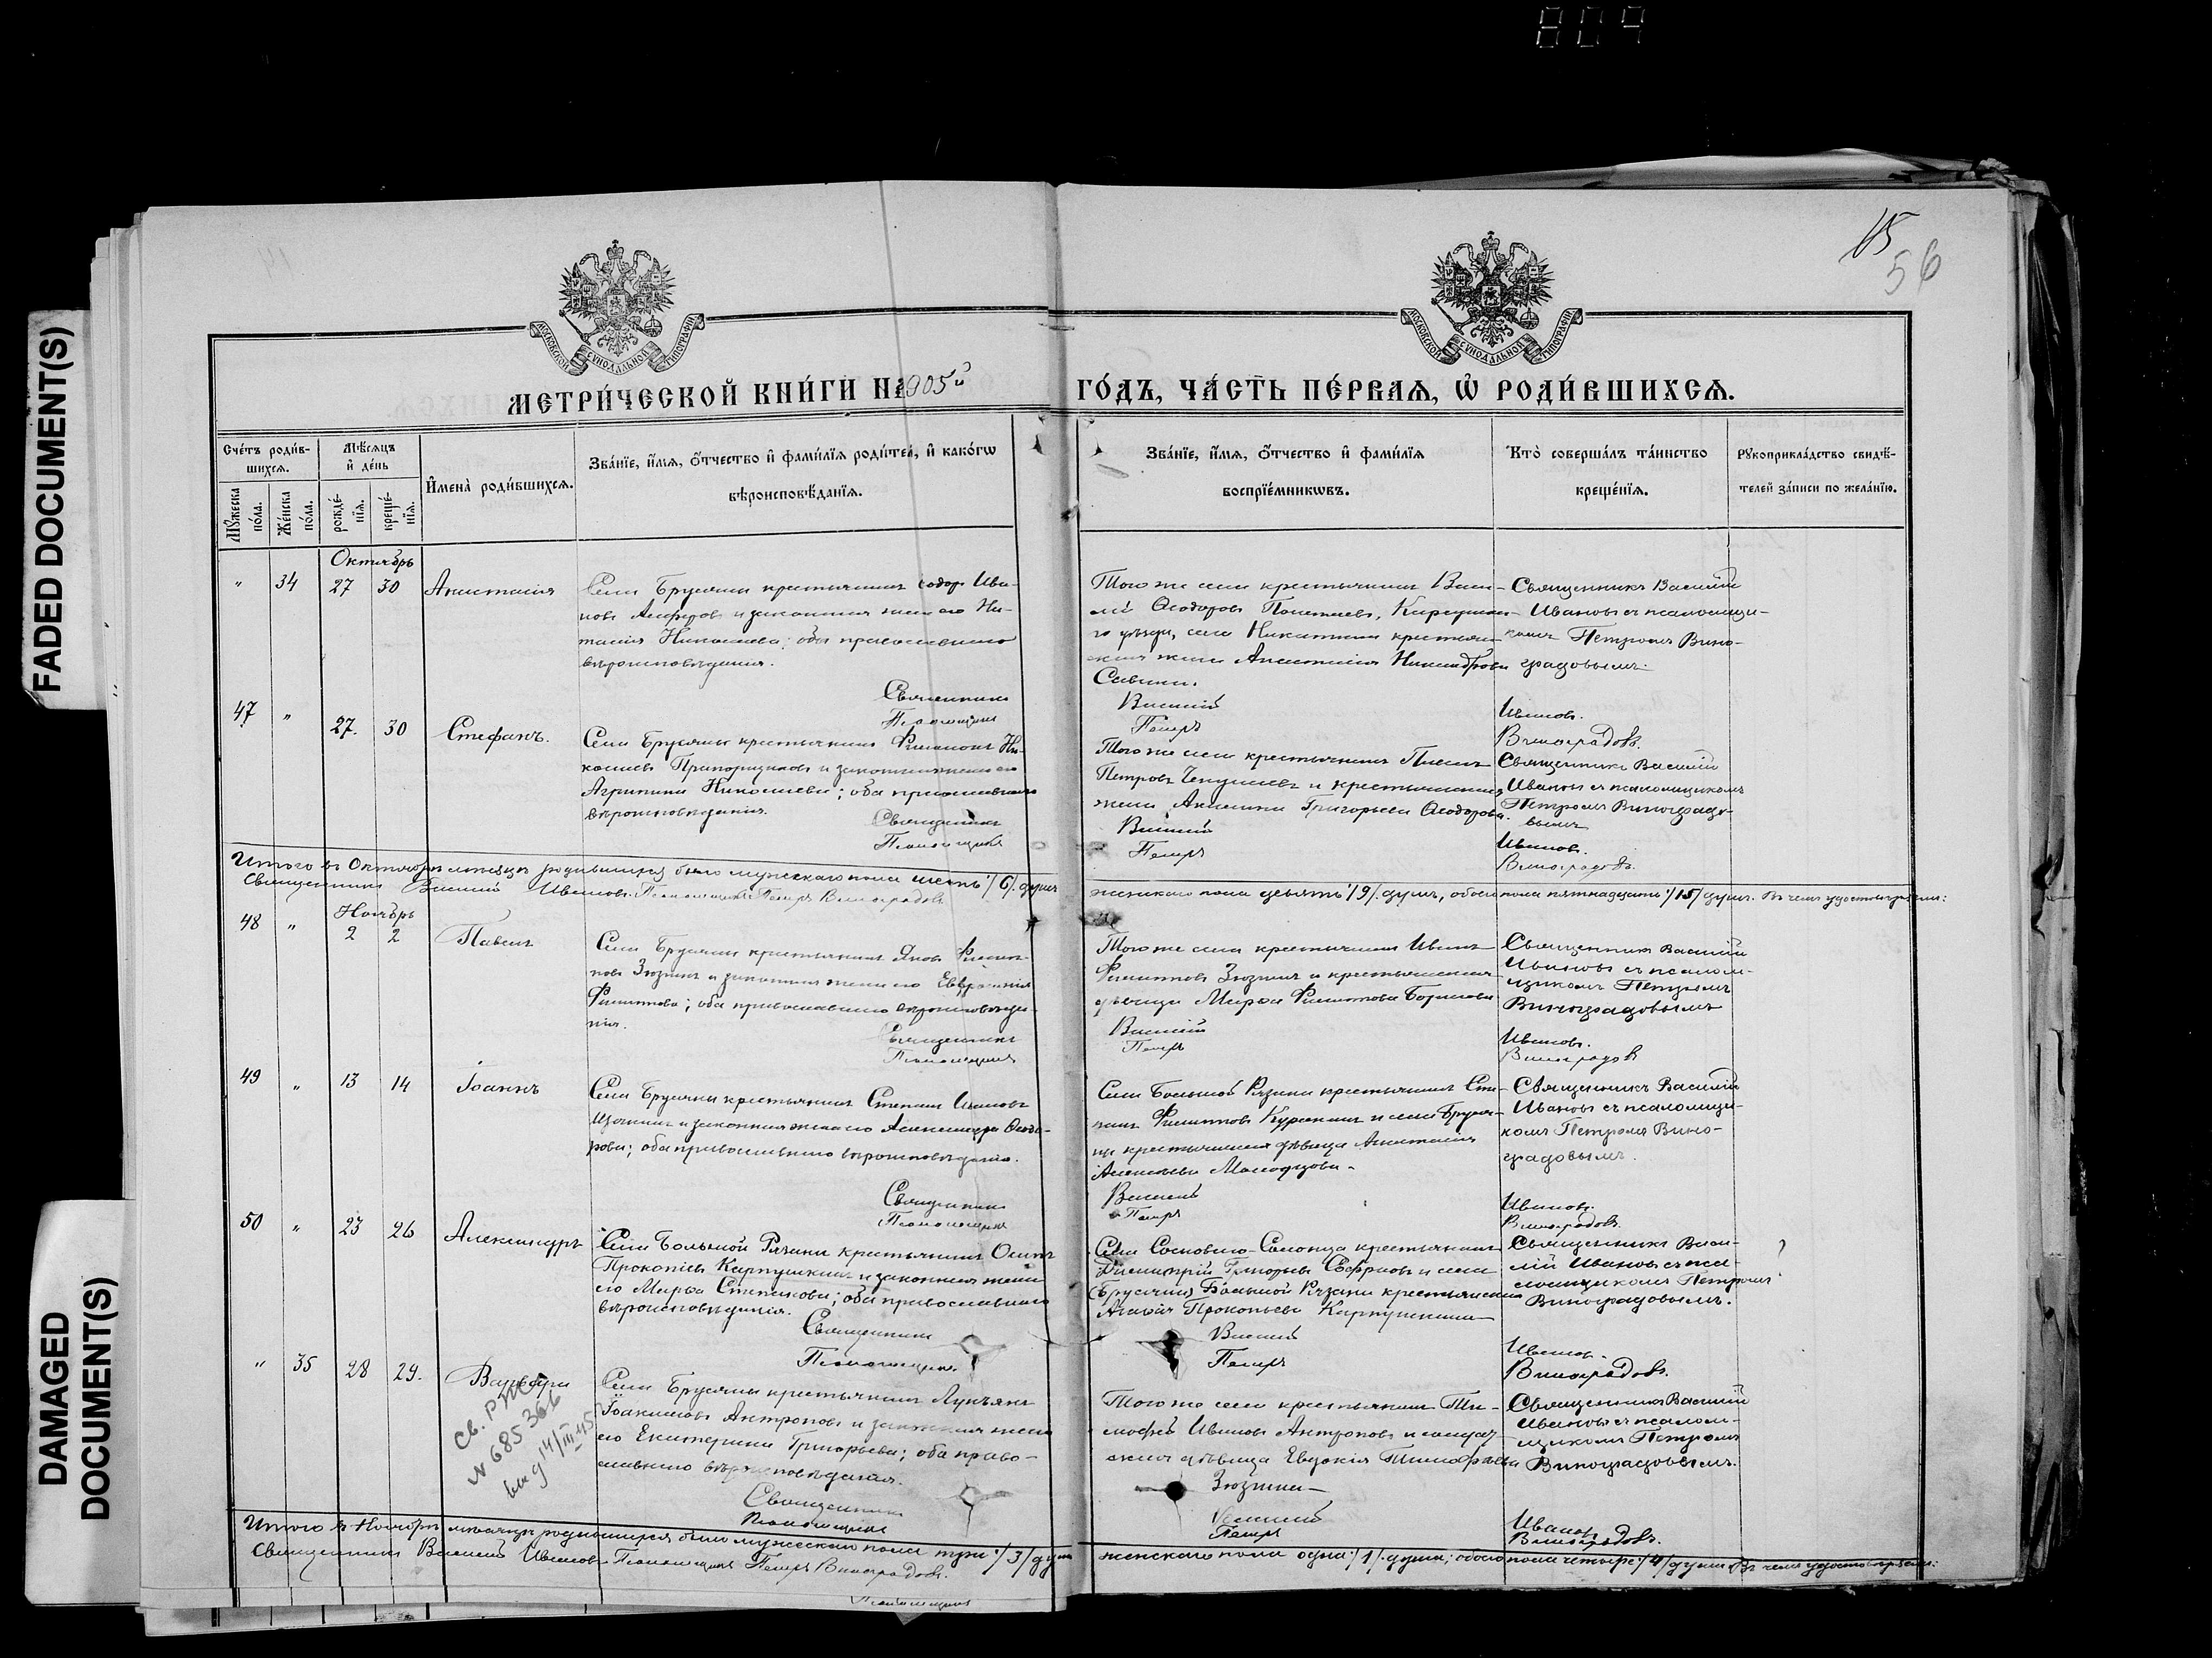 804
FADED DOCUMENT(S)
DAMAGED
DOCUMENT(S)
15
56
МОСКОВСКОЙ СѴНОДАЛЬНОЙ ТИПОГРАФІИ
МОСКОВСКОЙ СѴНОДАЛЬНОЙ ТИПОГРАФІИ
МЕТРИ́ЧЕСКОЙ КНИ́ГИ НА 905й ГО́ДЪ, ЧА́СТЬ ПЕ́РВАѦ, Ѡ҆ РОДИ́ВШИХСѦ.
Сче́тъ роди́в-
шихсѧ.
Мꙋ́жеска
по́ла.
Же́нска
по́ла.
Мѣ́сѧцъ
и҆ де́нь
рожде́-
нїѧ.
креще́-
нїѧ.
И҆мена̀ роди́вшихсѧ.
Зва́нїе, и҆́мѧ, ѻ҆́тчество и҆ фами́лїѧ роди́телей, и҆ како́гѡ
вѣроисповѣ́данїѧ.
Зва́нїе, и҆́мѧ, ѻ҆́тчество и҆ фами́лїѧ
воспрїе́мникѡвъ.
Кто̀ соверша́лъ та́инство
креще́нїѧ.
Рꙋкоприкла́дство свидѣ́-
телей за́писи по жела́нїю.
Октябрь
" 34 27 30 Анастасія
Села Брусяны крестьянинъ Ѳеодоръ Ива-
новъ Алферовъ и законная жена его На-
талія Николаева; оба православнаго
вѣроисповѣданія.
Священникъ
Псаломщикъ
Того же села крестьянинъ Васи-
лій Ѳеодоровъ
го уѣзда, села Никиткина крестьян-
ская жена Анастасія
Савина.
Василій
Петръ
Священникъ Василій
Ивановъ съ псаломщи-
комъ Петромъ Вино-
градовымъ.
Ивановъ.
Виноградовъ.
47 " 27. 30 Стефанъ.
Села Брусяны крестьянинъ Филимонъ Ни-
колаевъ Прапорщиковъ и законная жена его
Агрипина Николаева; оба православнаго
вѣроисповѣданія.
Священникъ
Псаломщикъ
Того же села крестьянинъ Павелъ
Петровъ и крестьянская
жена Акилина Григорьева Ѳеодорова.
Василій
Петръ
Священникъ Василій
Ивановъ съ псаломщикомъ
Петромъ Виноградо-
вымъ
Ивановъ.
Виноградовъ.
Итого въ Октябрѣ мѣсяцѣ родившихся было мужескаго пола шесть /6/ душъ женскаго пола девять /9/ душъ, обоего пола пятнадцать /15/ душъ. Въ чемъ удостовѣряемъ:
Священникъ Василій Ивановъ. Псаломщикъ Петръ Виноградовъ
Ноябрь
48 " 2 2 Павелъ
Села Брусяны крестьянинъ Яковъ Филип-
повъ Зюзинъ и законная жена его Евфросинія
Филиппова; оба православнаго вѣроисповѣда-
нія.
Священникъ
Псаломщикъ
Того же села крестьянинъ Иванъ
Филипповъ Зюзинъ и крестьянская
дѣвица Марѳа Филиппова Борисова
Василій
Петръ
Священникъ Василій
Ивановъ съ псалом-
щикомъ Петромъ
Виноградовымъ
Ивановъ.
Виноградовъ
49 " 13 14 Іоаннъ
Села Брусяны крестьянинъ Степанъ Ивановъ
и законная жена его Александра Ѳеодо-
рова; оба православнаго вѣроисповѣданія.
Священникъ
Псаломщикъ
Села Большой Рязани крестьянинъ Сте-
панъ Филипповъ и села Бруся-
ны крестьянская дѣвица Анастасія
Алексѣева Молодцова.
Василій
Петръ
Священникъ Василій
Ивановъ съ псаломщи-
комъ Петромъ Вино-
градовымъ.
Ивановъ.
Виноградовъ.
50 " 23 26 Александръ
Села Большой Рязани крестьянинъ Осипъ
Прокопіевъ Карпушкинъ и законная жена
его Марѳа Степанова; оба православнаго
вѣроисповѣданія.
Священникъ
Псаломщикъ.
Села Сосноваго-Солонца крестьянинъ
Димитрій Григорьевъ Сафроновъ и села
(Брусяны) Большой Рязани крестьянская
Агаѳія Прокопьева Карпушкина
Василій
Петръ
Священникъ Васи-
лій Ивановъ съ пса-
ломщикомъ Петромъ
Виноградовымъ.
Ивановъ.
Виноградовъ.
?
" 35 28 29. Варвара
Св. РЖ
N 685366
выд 14/III 45
Села Брусяны крестьянинъ Лукьянъ
Іоакимовъ Антроповъ и законная жена
его Екатерина Григорьева; оба право-
славнаго вѣроисповѣданія.
Священникъ
Псаломщикъ
Того же села крестьянинъ Ти-
моѳей Ивановъ Антроповъ и солдат-
ская дѣвица Евдокія Тимоѳѣева
Зюзина
Василій
Петръ
Священникъ Василій
Ивановъ съ псалом-
щикомъ Петромъ
Виноградовымъ.
Ивановъ.
Виноградовъ.
Итого въ Ноябрѣ мѣсяцѣ родившихся было мужескаго пола три /3/ души женскаго пола одна /1/ душа; обоего пола четыре /4/ души. Въ чемъ удостовѣряемъ:
Священникъ Василій Ивановъ. Псаломщикъ Петръ Виноградовъ.
Псаломщикъ